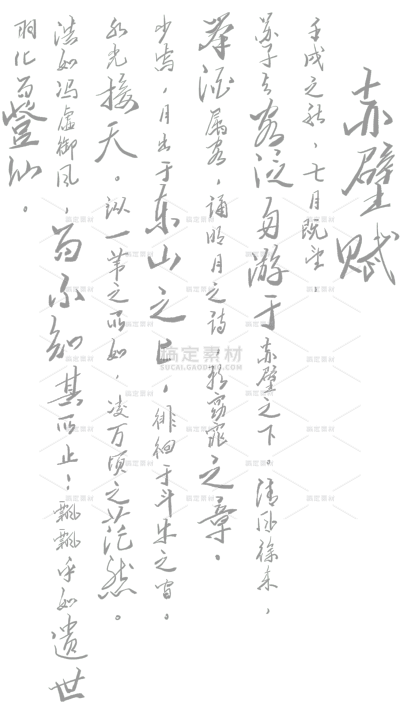 赤壁赋
壬戌之秋，七月既望，
苏子与客泛舟游于赤壁之下。清风徐来，
举酒属客，诵明月之诗，歌窈窕之章。
少焉，月出于东山之上，徘徊于斗牛之间。
水光接天。纵一苇之所如，凌万顷之茫然。
浩如冯虚御风，而不知其所止；飘飘乎如遗世
羽化而登仙。
搞定素材
SUCAI.GAODING.COM